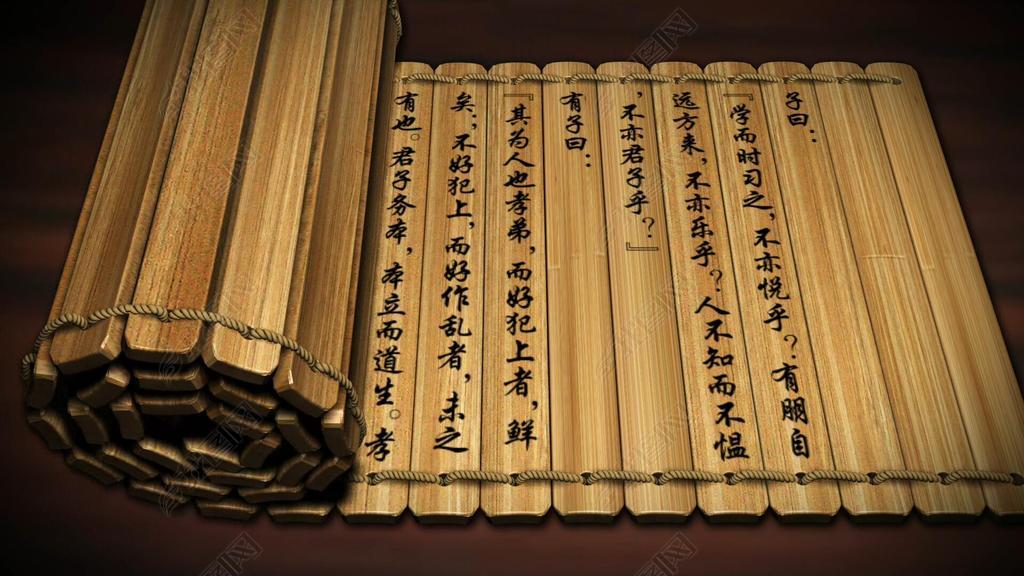 子曰：
『学而时习之，不亦悦乎？有朋自
远方来，不亦乐乎？人不知而不愠
，不亦君子乎？』
有子曰：
『其为人也孝弟，而好犯上者，鲜
矣；不好犯上，而好作乱者，未之
有也。君子务本，本立而道生。孝